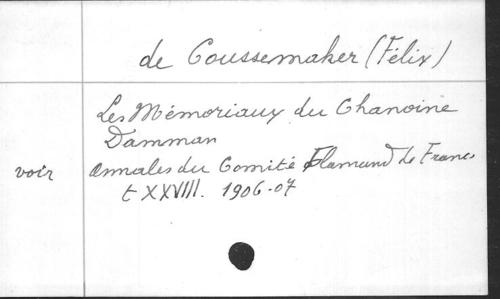 de Coussemaker (Félix)
Les Mémoriaux du Chanoine
Damman
voir Annales du Comité Flamand de France
t XXVIII. 1906-07